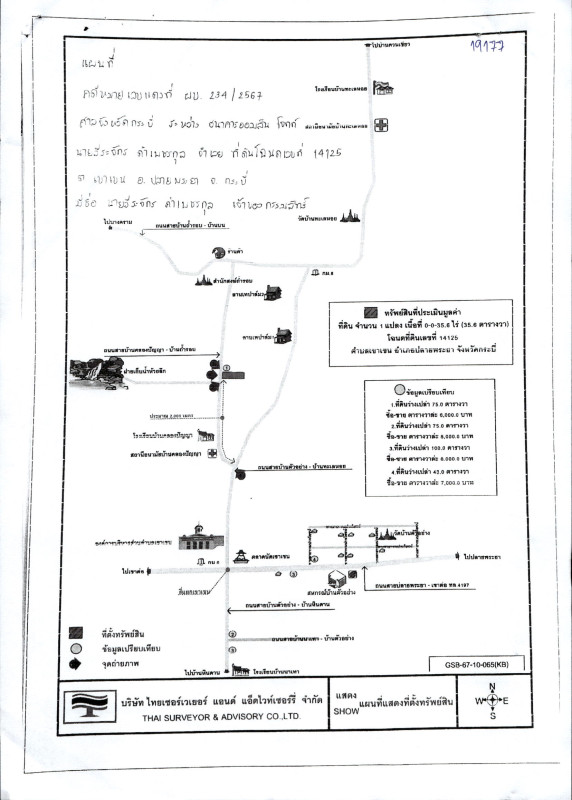 19177
แผนที่
คดีหมายเลขแดงที่ ผบ. 234/2567
ศาลจังหวัดกระบี่ ระหว่าง ธนาคารออมสิน โจทก์
จำเลย ที่ดินโฉนดเลขที่ 14125
ต. เขาเขน อ. ปลายพระยา จ. กระบี่
เจ้าของกรรมสิทธิ์
โรงเรียนบ้านทะเลหอย
สถานีอนามัยบ้านทะเลหอย
วัดบ้านทะเลหอย
ไปบางคราม
ถนนสายบ้านถ้ำรอบ - บ้านบน
ร้านค้า
กม.8
สำนักสงฆ์ถ้ำรอบ
ศาลเทปาล้มว
ทรัพย์สินที่ประเมินมูลค่า
ที่ดิน จำนวน 1 แปลง เนื้อที่ 0-0-35.6 ไร่ (35.6 ตารางวา)
โฉนดที่ดินเลขที่ 14125
ตำบลเขาเขน อำเภอปลายพระยา จังหวัดกระบี่
ถนนสายบ้านคลองปัญญา - บ้านถ้ำรอบ
ฝายเก็บน้ำห้วยลึก
ข้อมูลเปรียบเทียบ
1.ที่ดินว่างเปล่า 75.0 ตารางวา
ซื้อ-ขาย ตารางวาละ 6,000.0 บาท
2.ที่ดินว่างเปล่า 75.0 ตารางวา
ซื้อ-ขาย ตารางวาละ 6,000.0 บาท
3.ที่ดินว่างเปล่า 100.0 ตารางวา
ซื้อ-ขาย ตารางวาละ 6,000.0 บาท
4.ที่ดินว่างเปล่า 43.0 ตารางวา
ซื้อ-ขาย ตารางวาละ 7,000.0 บาท
ประมาณ 2,000 เมตร
โรงเรียนบ้านคลองปัญญา
สถานีอนามัยบ้านคลองปัญญา
ถนนสายบ้านตัวอย่าง - บ้านทะเลหอย
องค์การบริหารส่วนตำบลเขาเขน
วัดบ้านตัวอย่าง
ตลาดนัดเขาเขน
ไปปลายพระยา
ไปเขาต่อ
สหกรณ์บ้านตัวอย่าง
ถนนสายปลายพระยา - เขาต่อ ทล 4197
สี่แยกเขาเขน
ถนนสายบ้านตัวอย่าง - บ้านหินดาน
ที่ตั้งทรัพย์สิน
ข้อมูลเปรียบเทียบ
จุดถ่ายภาพ
ไปบ้านหินดาน
GSB-67-10-065(KB)
บริษัท ไทยเซอร์เวเยอร์ แอนด์ แอ็ดไวท์เซอร์รี่ จำกัด
THAI SURVEYOR & ADVISORY CO.,LTD.
แสดง
SHOW
แผนที่แสดงที่ตั้งทรัพย์สิน
N
W E
S